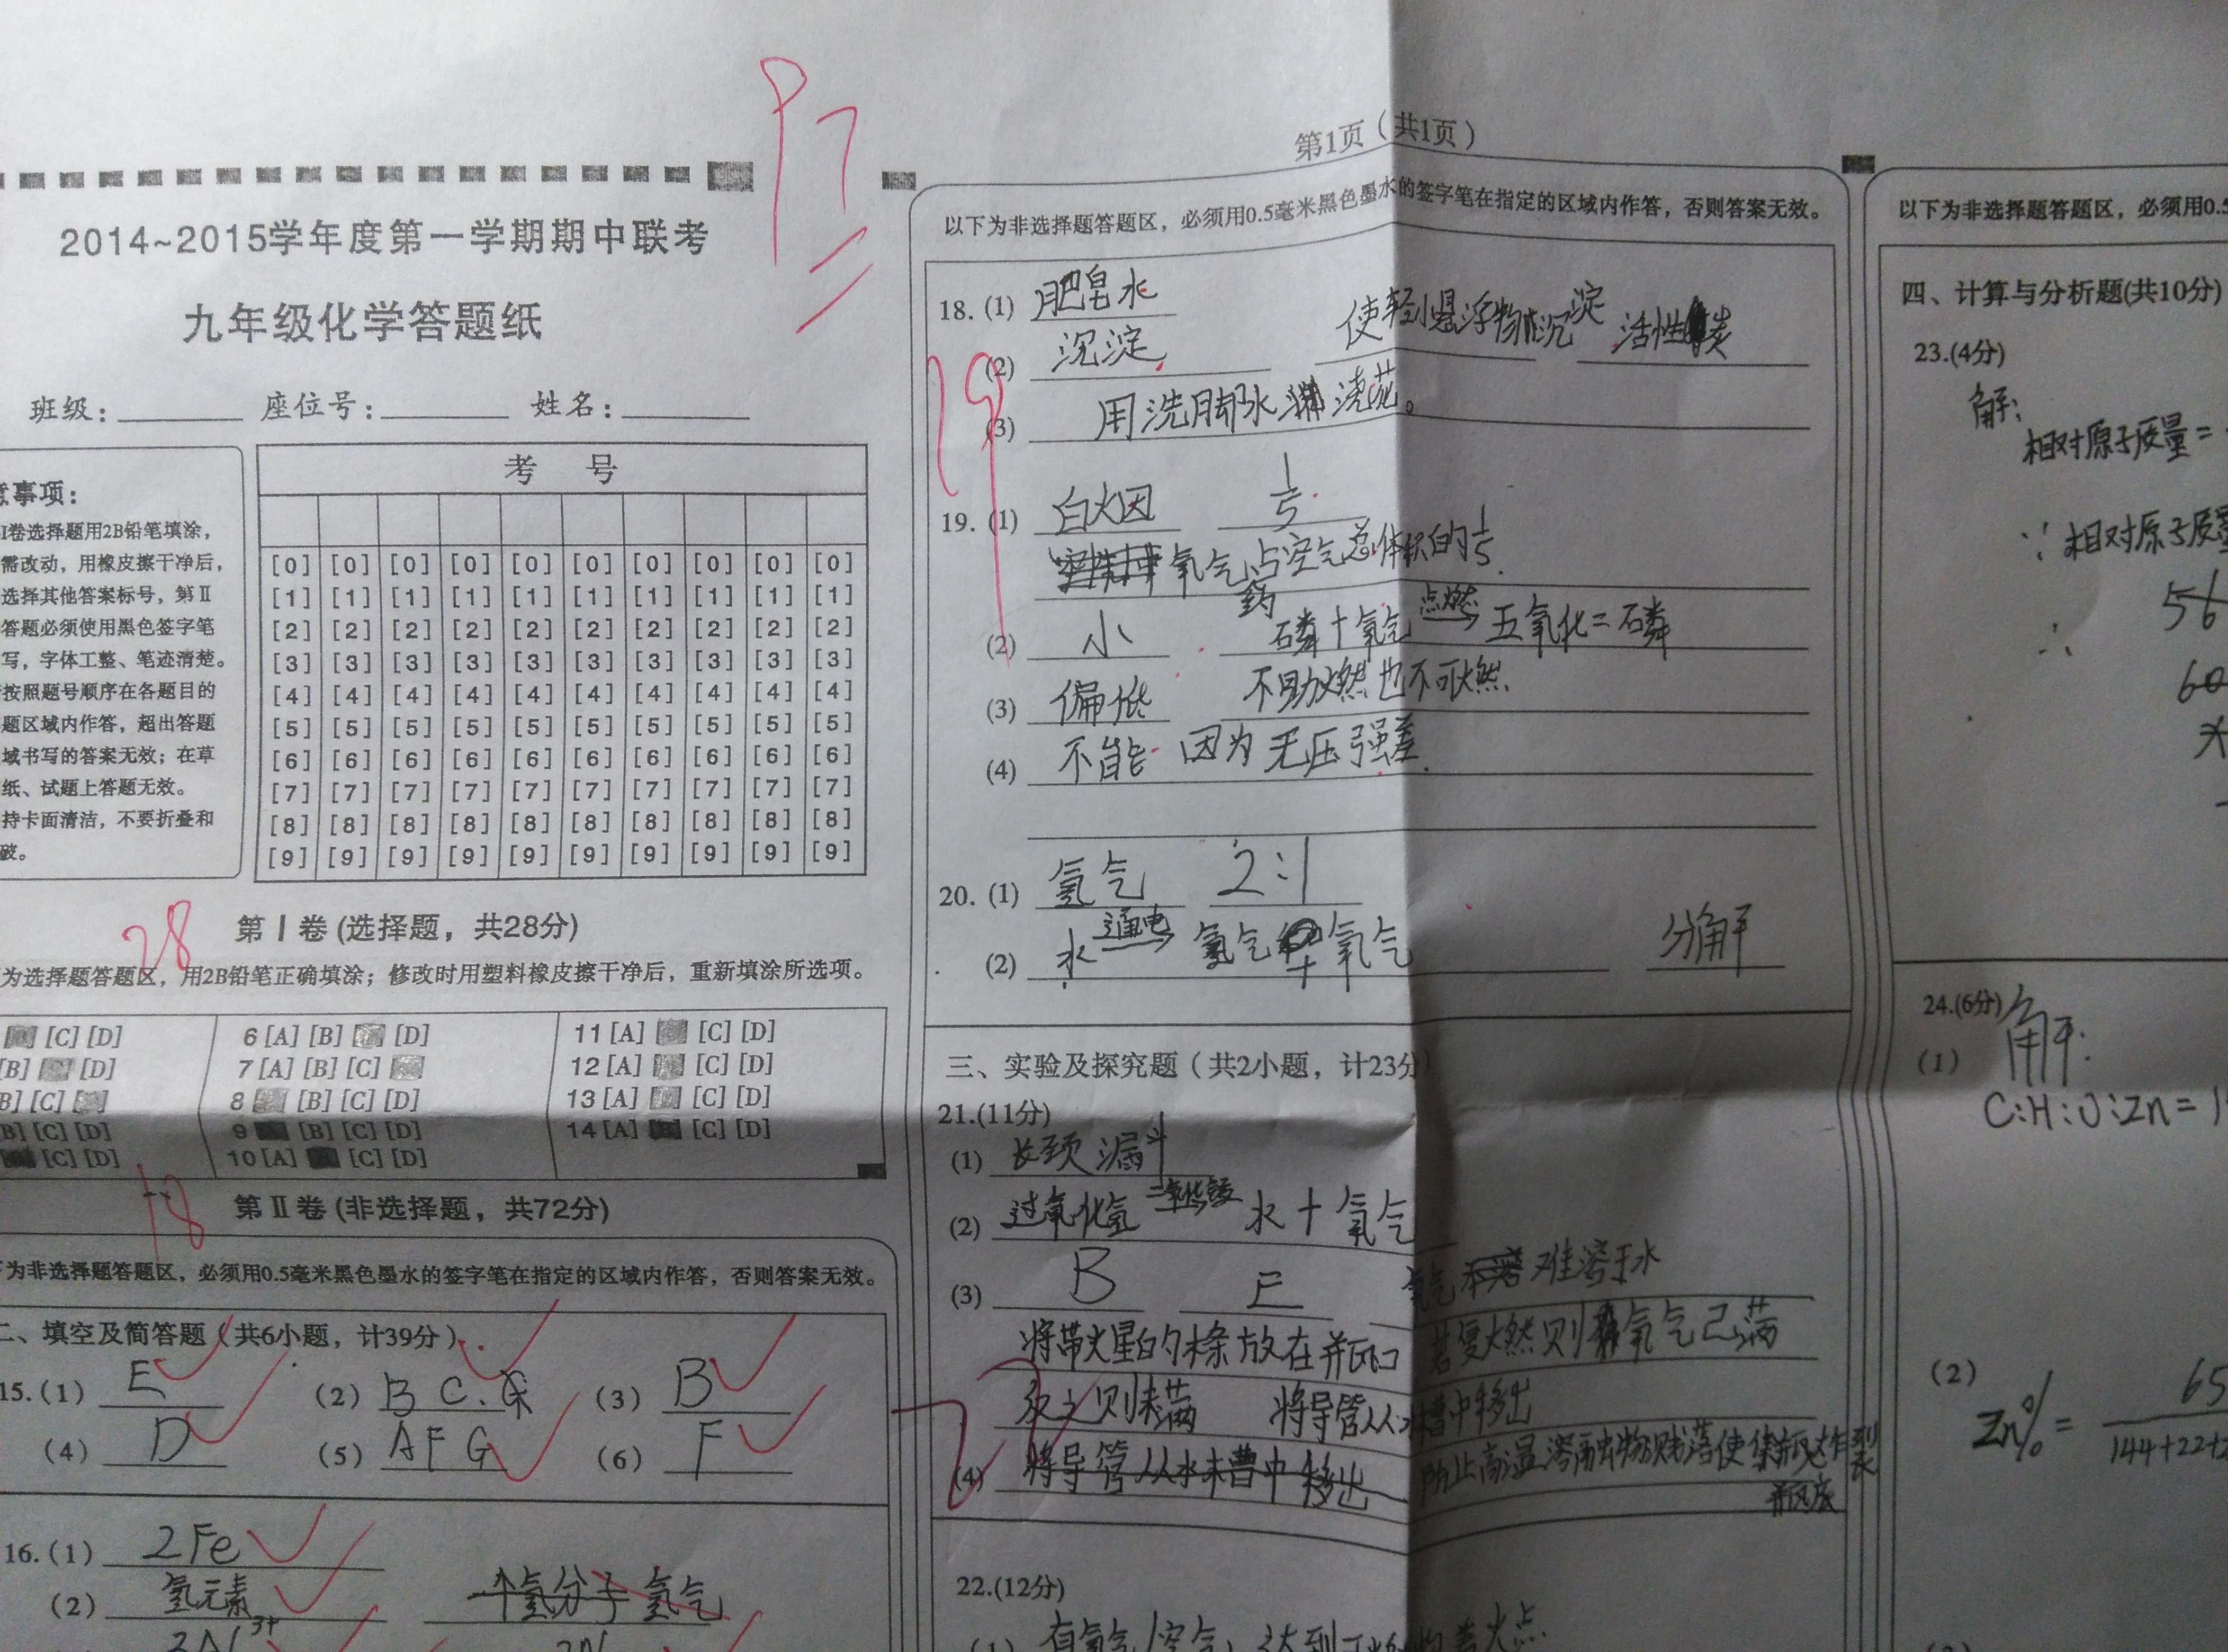 第1页（共1页）
2014~2015学年度第一学期期中联考
九年级化学答题纸
班级：
座位号：
姓名：
意事项：
I卷选择题用2B铅笔填涂，
需改动，用橡皮擦干净后，
选择其他答案标号，第Ⅱ
答题必须使用黑色签字笔
写，字体工整、笔迹清楚。
按照题号顺序在各题目的
题区域内作答，超出答题
域书写的答案无效；在草
纸、试题上答题无效。
持卡面清洁，不要折叠和
破。
考 号
[0] [0] [0] [0] [0] [0] [0] [0] [0] [0]
[1] [1] [1] [1] [1] [1] [1] [1] [1] [1]
[2] [2] [2] [2] [2] [2] [2] [2] [2] [2]
[3] [3] [3] [3] [3] [3] [3] [3] [3] [3]
[4] [4] [4] [4] [4] [4] [4] [4] [4] [4]
[5] [5] [5] [5] [5] [5] [5] [5] [5] [5]
[6] [6] [6] [6] [6] [6] [6] [6] [6] [6]
[7] [7] [7] [7] [7] [7] [7] [7] [7] [7]
[8] [8] [8] [8] [8] [8] [8] [8] [8] [8]
[9] [9] [9] [9] [9] [9] [9] [9] [9] [9]
28
第Ⅰ卷(选择题，共28分)
为选择题答题区，用2B铅笔正确填涂；修改时用塑料橡皮擦干净后，重新填涂所选项。
[C] [D] 6 [A] [B] [D] 11 [A] [C] [D]
[B] [D] 7 [A] [B] [C] 12 [A] [C] [D]
[B] [C] 8 [B] [C] [D] 13 [A] [C] [D]
[B] [C] [D] 9 [B] [C] [D] 14 [A] [C] [D]
[C] [D] 10 [A] [C] [D]
第Ⅱ卷(非选择题，共72分)
下为非选择题答题区，必须用0.5毫米黑色墨水的签字笔在指定的区域内作答，否则答案无效。
二、填空及简答题（共6小题，计39分）
15.(1) E (2) B C.G (3) B
(4) D (5) A F G (6) F
16.(1) 2Fe
(2) 氢元素 氢气
以下为非选择题答题区，必须用0.5毫米黑色墨水的签字笔在指定的区域内作答，否则答案无效。
18.(1) 肥皂水
(2) 沉淀 使轻小悬浮物沉淀 活性炭
(3) 用洗脚水浇花。
19.(1) 白烟 1/5
氧气占空气总体积的1/5
(2) 小 磷+氧气 点燃→ 五氧化二磷
(3) 偏低 不助燃也不可燃
(4) 不能 因为无压强差.
20.(1) 氢气 2:1
(2) 水 通电→ 氢气+氧气 分解
三、实验及探究题（共2小题，计23分）
21.(11分)
(1) 长颈漏斗
(2) 过氧化氢 二氧化锰→ 水+氧气
(3) B E 氧气 难溶于水
将带火星的木条放在瓶口 若复燃则氧气已满
反之则未满 将导管从水槽中移出
(4) 将导管从水槽中移出 防止高温溶融物溅落使集气瓶炸裂
瓶底
22.(12分)
以下为非选择题答题区，必须用0.5
四、计算与分析题(共10分)
23.(4分)
解:
相对原子质量=
∵相对原子质量
∴ 56
24.(6分)
(1) 解:
C:H:O:Zn=1
(2) Zn%= 65
144+22+